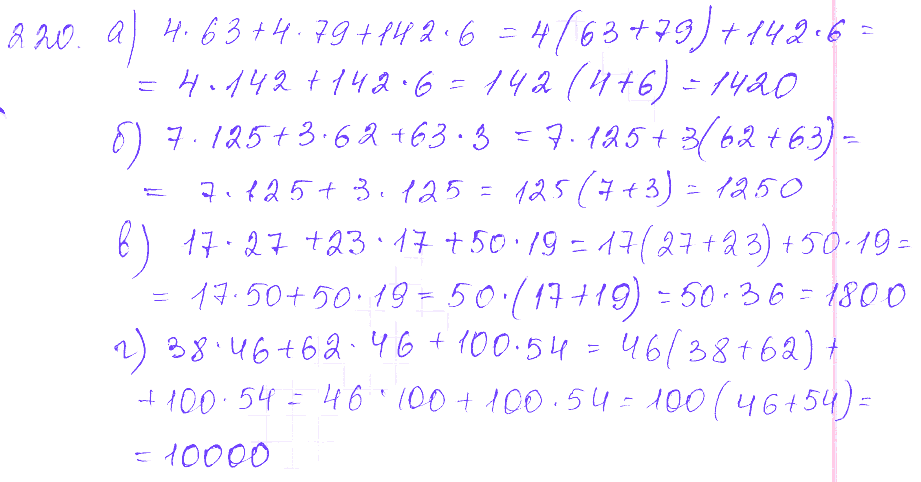 220. а) 4·63+4·79+142·6 = 4(63+79)+142·6 =
= 4·142+142·6 = 142(4+6) = 1420
б) 7·125+3·62+63·3 = 7·125+3(62+63) =
= 7·125+3·125 = 125(7+3) = 1250
в) 17·27+23·17+50·19 = 17(27+23)+50·19 =
= 17·50+50·19 = 50·(17+19) = 50·36 = 1800
г) 38·46+62·46+100·54 = 46(38+62)+
+100·54 = 46·100+100·54 = 100(46+54) =
= 10000